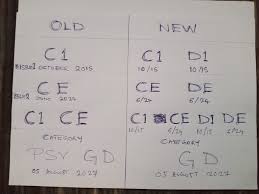 OLD
C1
OCTOBER 2015
CE
2024
C1 CE
CATEGORY
PSV GD
05 AUGUST 2027
NEW
C1 D1
10/15 10/15
CE DE
6/24 6/24
C1 CE D1 DE
10/15 6/24 10/15 6/24
CATEGORY
GD
05 AUGUST 2027